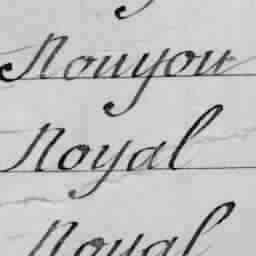 Nouyou
Noyal
Noyal